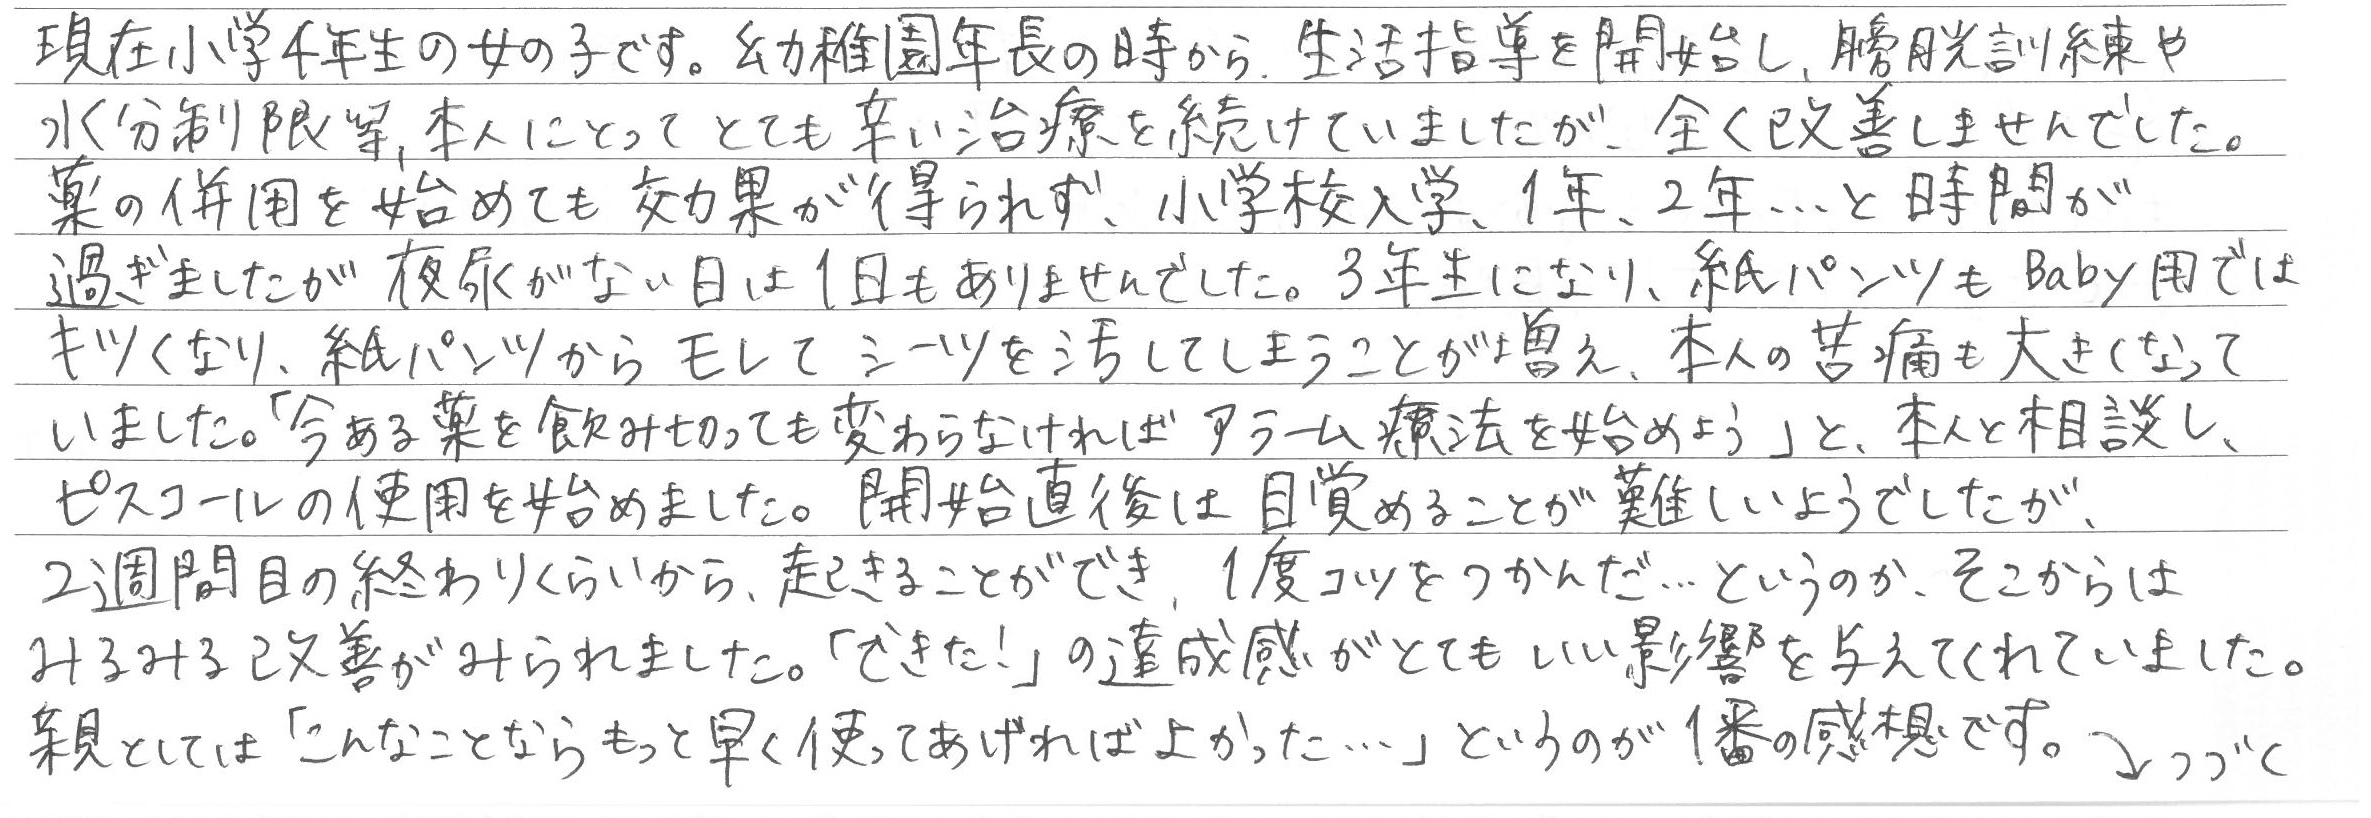 現在小学4年生の女の子です。幼稚園年長の時から、生活指導を開始し、膀胱訓練や
水分制限等、本人にとってとても辛い治療を続けていましたが、全く改善しませんでした。
薬の併用を始めても効果が得られず、小学校入学、1年、2年…と時間が
過ぎましたが夜尿がない日は1日もありませんでした。3年生になり、紙パンツもBaby用では
キツくなり、紙パンツからモレてシーツを汚してしまうことが増え、本人の苦痛も大きくなって
いました。「今ある薬を飲み切っても変わらなければアラーム療法を始めよう」と、本人と相談し、
ピスコールの使用を始めました。開始直後は目覚めることが難しいようでしたが、
2週間目の終わりくらいから、起きることができ、1度コツをつかんだ…というのか、そこからは
みるみる改善がみられました。「できた!」の達成感がとてもいい影響を与えてくれていました。
親としては「こんなことならもっと早く使ってあげればよかった…」というのが1番の感想です。↘つづく